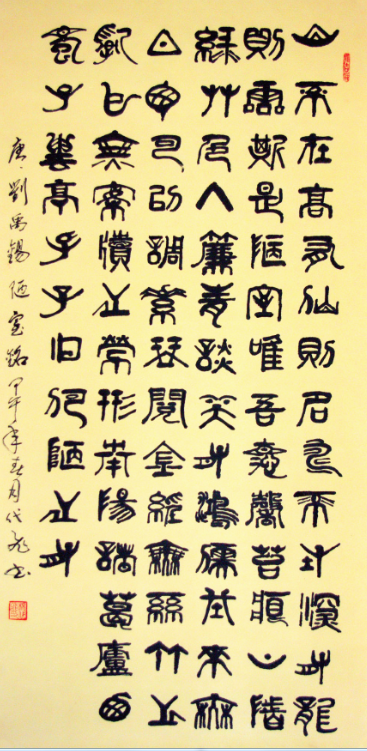 山不在高有仙則名水不在深有龍
則靈斯是陋室唯吾德馨苔痕上階
綠草色入簾青談笑有鴻儒往來無
白丁可以調素琴閱金經無絲竹之
亂耳無案牘之勞形南陽諸葛廬西
蜀子雲亭孔子曰何陋之有
唐·劉禹錫陋室銘甲午年春月代飛書